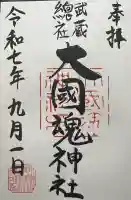 奉拝
武蔵
總社
大國魂神社
令和七年九月一日